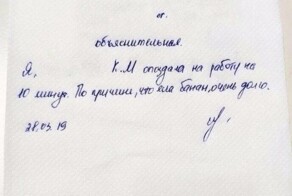 объяснительная.
Я, К.М опоздала на работу на
10 минут. По причини, что ела банан, очень долго.
28.03.19